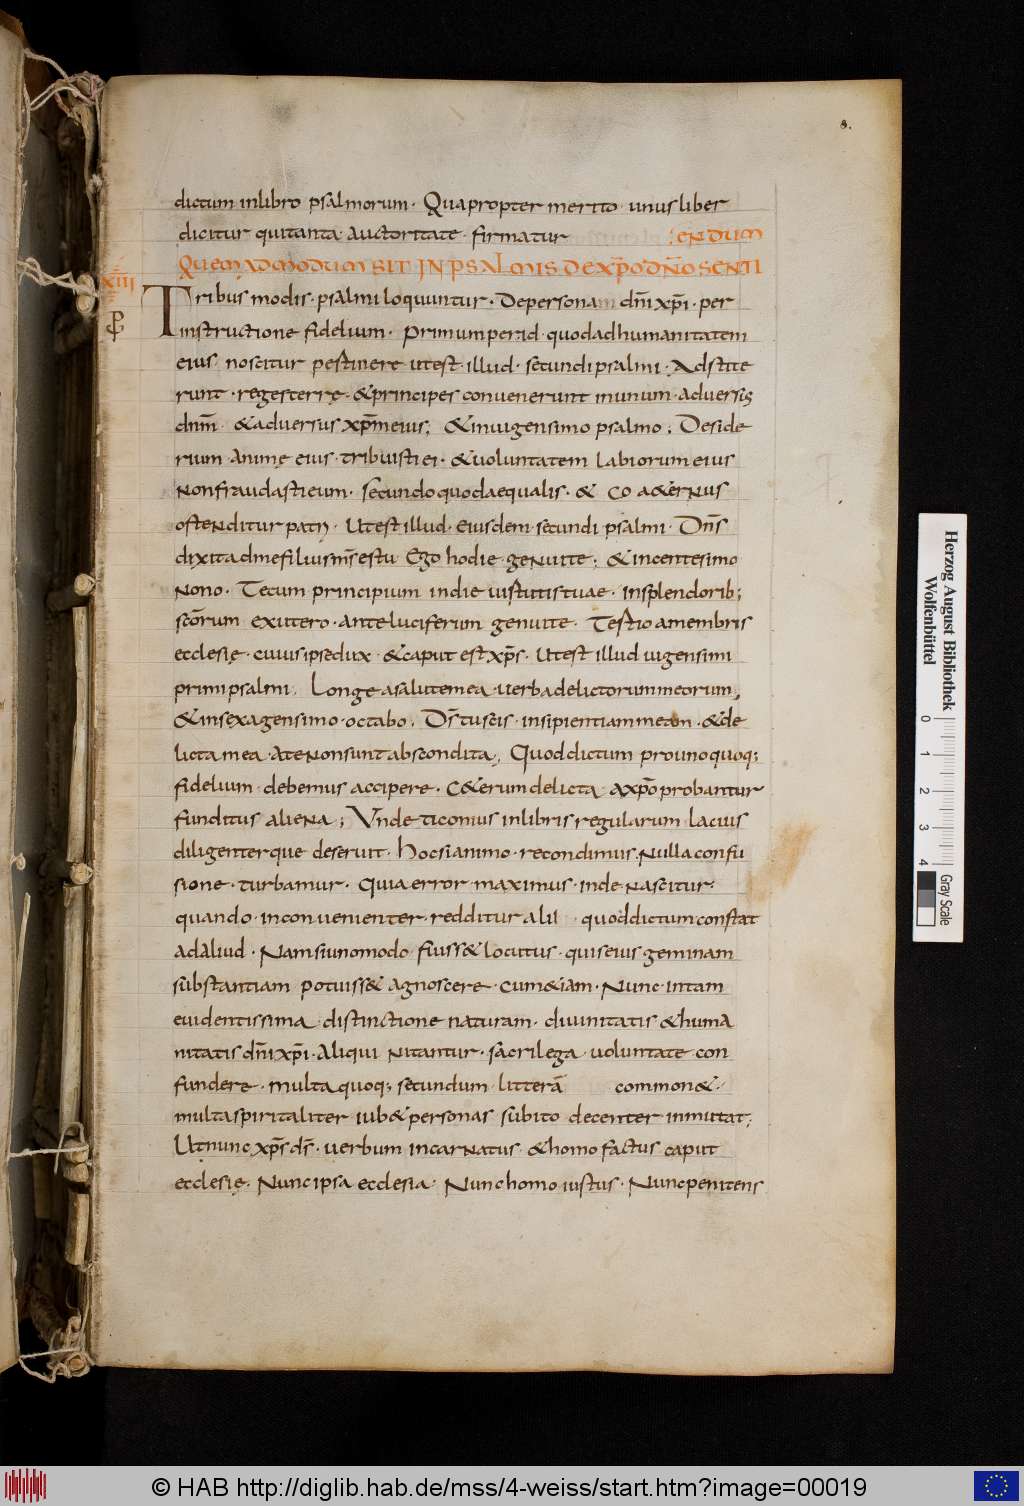 8.
dictum inlibro psalmorum · Quapropter merito · unus liber
dicitur qui tanta · auctoritate · firmatur
:ENDUM
QUEMADMODUM SIT IN PSALMIS DE XP̄O DN̄O SENTI
XIII
Tribus modis · psalmi loquuntur · De personam dn̄i xp̄i · per
instructione fidelium · Primum per id · quod ad humanitatem
eius noscitur pertinere ut est · illud · secundi psalmi · Adstite
runt · reges terrę · & principes convenerunt in unum · adversus
dnm̄ · & adversus xp̄m eius; & in uigensimo psalmo; Deside
rium animę eius · tribuisti ei · & uoluntatem labiorum eius
non fraudasti eum · secundo quod aequalis · & co a&ernus
ostenditur patri · Ut est illud · eiusdem secundi psalmi · Dn̄s
dixit ad me filius m̄s es tu Ego hodie genui te; & in centesimo
nono · Tecum principium in die uirtutis tuae · in splendorib;
sc̄orum ex utero · ante luciferum genui te · Tertio a membris
ecclesię · cuius ipse dux · & caput est xp̄s · Ut est illud uigensimi
primi psalmi. Longe a salute mea · uerba delictorum meorum;
& in sexagensimo · octabo. Ds̄ tu scis · insipientiam meam · & de
licta mea · a te non sunt abscondita; Quod dictum pro uno quoq;
fidelium debemus accipere · C&erum delicta a xp̄o probantur
funditus aliena; Unde ticonius in libris regularum lacius
diligenterque deseruit · hoc si animo · recondimus nulla confu
sione · turbamur · Quia error maximus · inde nascitur ·
quando · inconvenienter · redditur alii quod dictum constat
ad aliud · Nam si uno modo fuiss& locutus · quis eius geminam
substantiam potuiss& agnoscere · cum &iam · Nunc · in tam
euidentissima distinctione naturam · diuinitatis & huma
nitatis dn̄i xp̄i · aliqui nitantur · sacrilega · uoluntate con
fundere · multa quoq; secundum litterā common& ·
multa spiritaliter iub& personas subito decenter inmutat;
Ut nunc xp̄s ds̄ · uerbum incarnatus & homo factus caput
ecclesię · Nunc ipsa ecclesia · Nunc homo iustus · Nunc penitens
Herzog August Bibliothek
Wolfenbüttel
0 1 2 3 4
Gray Scale
© HAB http://diglib.hab.de/mss/4-weiss/start.htm?image=00019